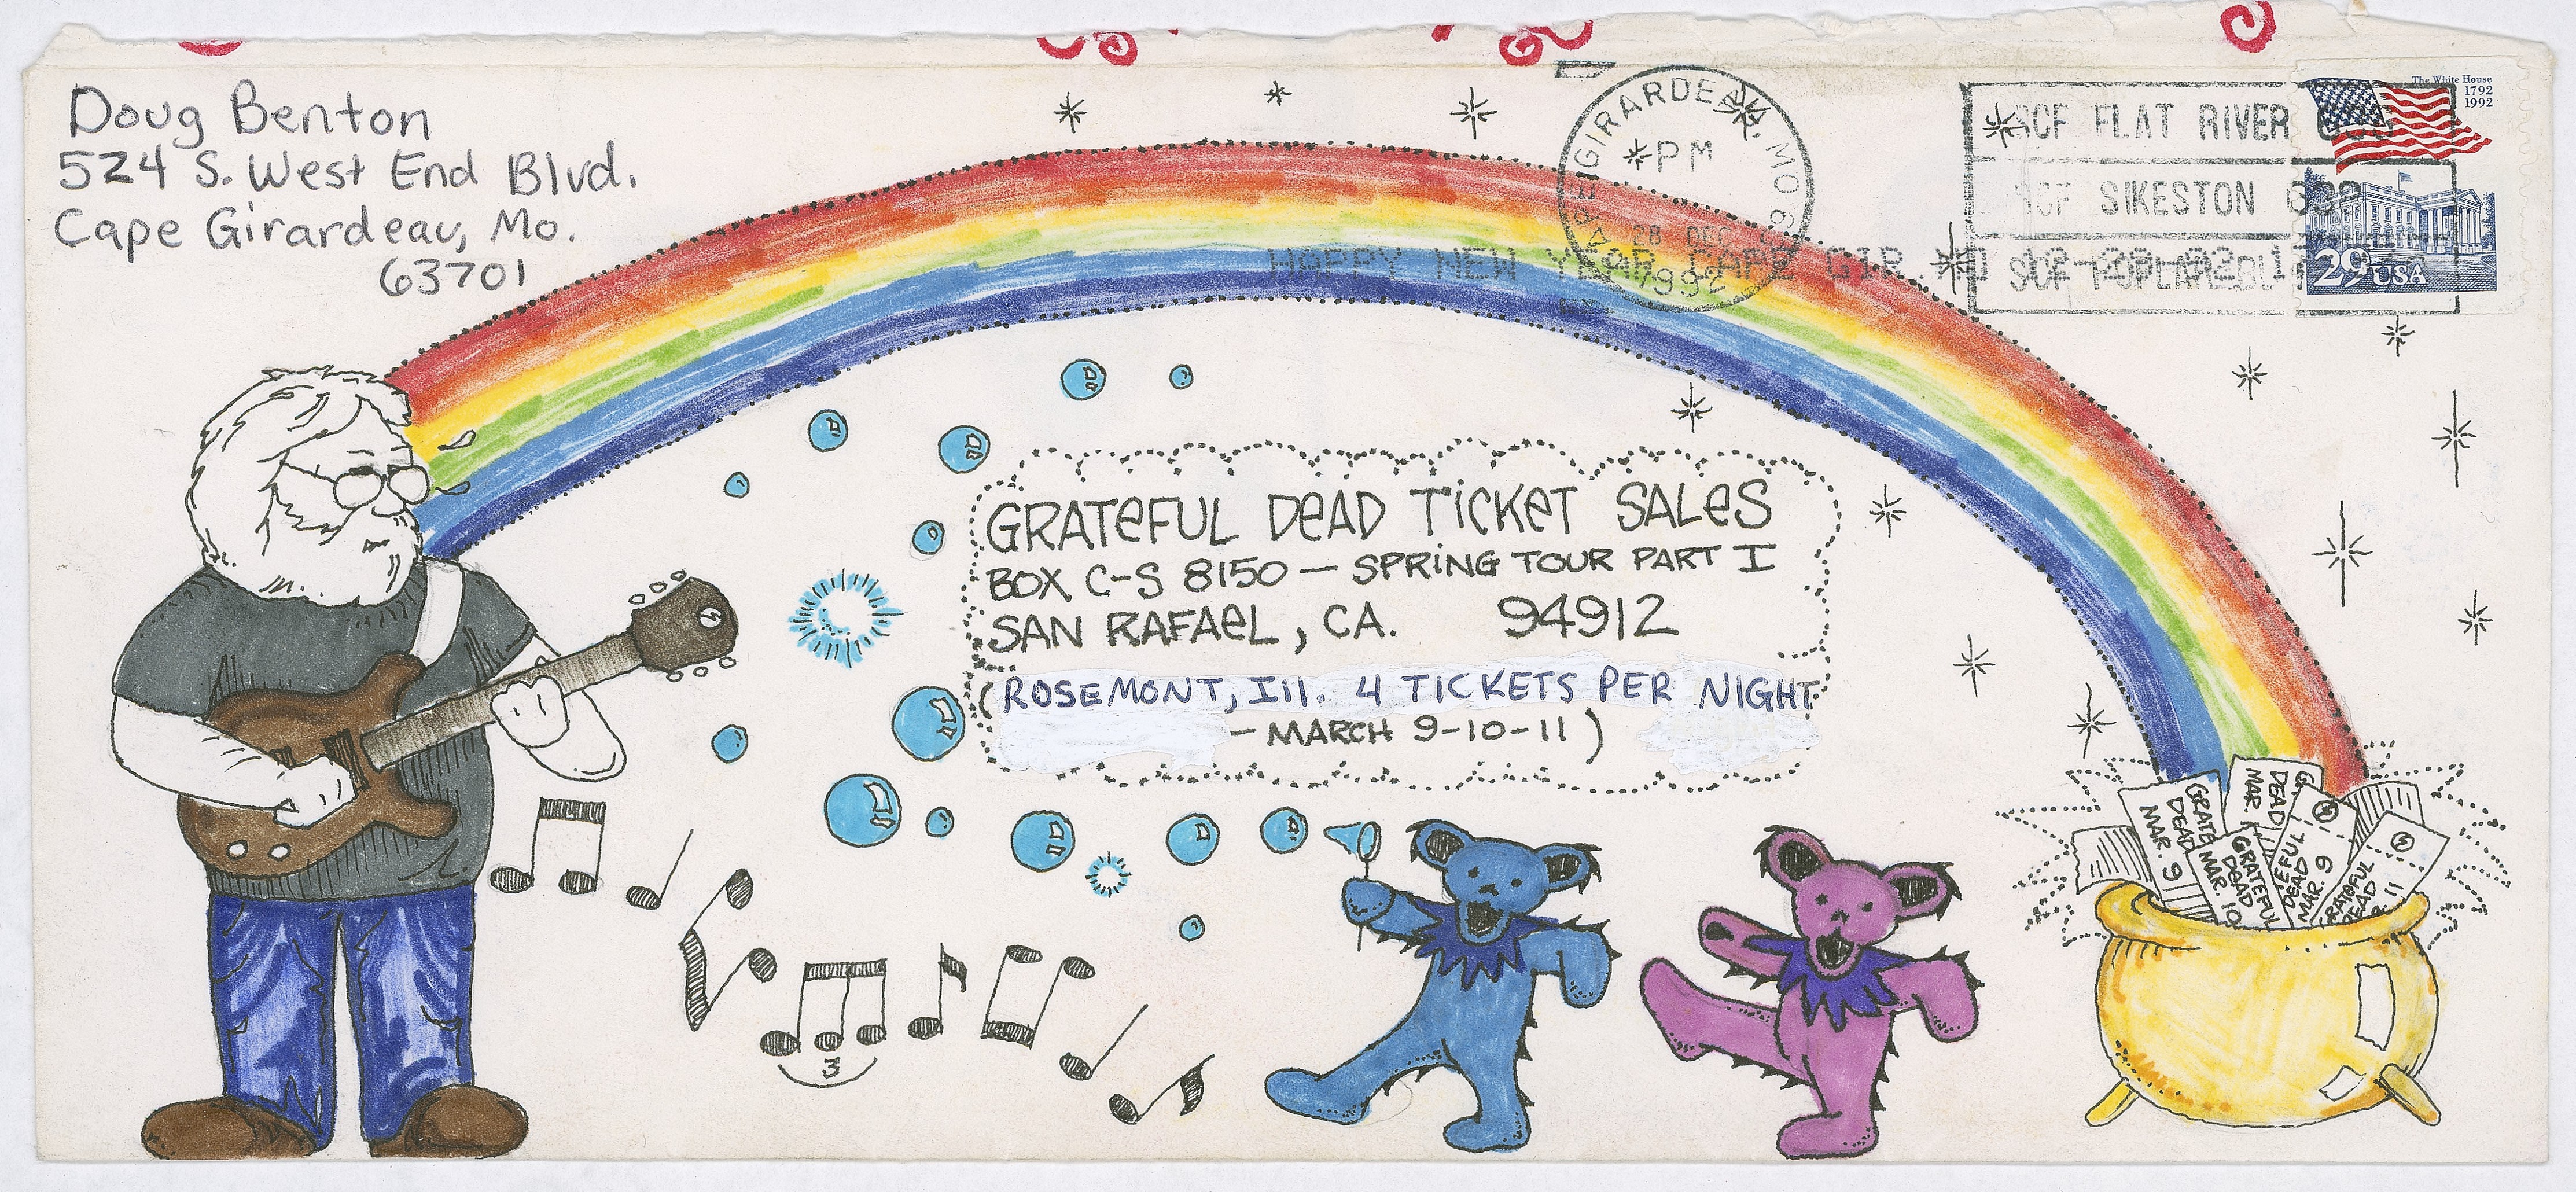 Doug Benton
524 S. West End Blvd.
Cape Girardeau, Mo.
63701
CAPE GIRARDEAU, MO 6
PM
28 DEC
1992
HAPPY NEW YEAR CAPE GIR MO 12-28-92
SCF FLAT RIVER
SCF SIKESTON
SCF POPLAR
The White House
1792
1992
29 USA
GRATEFUL DEAD TICKET SALES
BOX C-S 8150 — SPRING TOUR PART I
SAN RAFAEL, CA. 94912
(ROSEMONT, Ill. 4 TICKETS PER NIGHT
— MARCH 9-10-11)
3
GRATE
DEAD
MAR. 9
DEAD
MAR.
GRATEFUL
DEAD
MAR. 10
EFUL
DEAD
MAR. 9
GRATEFUL
DEAD
R. 11